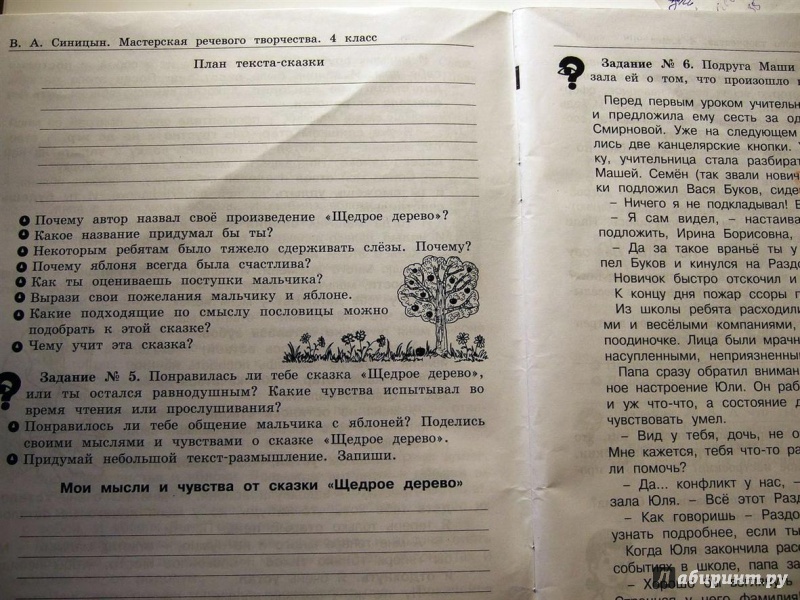 В. А. Синицын. Мастерская речевого творчества. 4 класс
План текста-сказки
Почему автор назвал своё произведение «Щедрое дерево»?
Какое название придумал бы ты?
Некоторым ребятам было тяжело сдерживать слёзы. Почему?
Почему яблоня всегда была счастлива?
Как ты оцениваешь поступки мальчика?
Вырази свои пожелания мальчику и яблоне.
Какие подходящие по смыслу пословицы можно
подобрать к этой сказке?
Чему учит эта сказка?
Задание № 5. Понравилась ли тебе сказка «Щедрое дерево»,
или ты остался равнодушным? Какие чувства испытывал во
время чтения или прослушивания?
Понравилось ли тебе общение мальчика с яблоней? Поделись
своими мыслями и чувствами о сказке «Щедрое дерево».
Придумай небольшой текст-размышление. Запиши.
Мои мысли и чувства от сказки «Щедрое дерево»
Задание № 6. Подруга Маши
зала ей о том, что произошло
Перед первым уроком учительн
и предложила ему сесть за од
Смирновой. Уже на следующем
лись две канцелярские кнопки.
ку, учительница стала разбират
Машей. Семён (так звали нович
ки подложил Вася Буков, сиде
– Ничего я не подкладывал!
– Я сам видел, – настаива
подложить, Ирина Борисовна,
– Да за такое враньё ты у
пел Буков и кинулся на Раздо
Новичок быстро отскочил и
К концу дня пожар ссоры
Из школы ребята расходили
ми и весёлыми компаниями,
поодиночке. Лица были мрачн
насупленными, неприязненным
Папа сразу обратил вниман
ное настроение Юли. Он раб
и уж что-что, а состояние д
чувствовать умел.
– Вид у тебя, дочь, не о
Мне кажется, тебя что-то ра
ли помочь?
– Да... конфликт у нас, –
зала Юля. – Всё этот Разд
– Как говоришь – Раздо
узнать подробнее, если ты
Когда Юля закончила расс
событиях в школе, папа за
– Хорошо
Лабиринт.ру